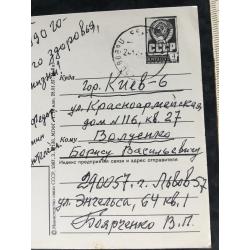 здо го-
го здоровья,
СССР
Куда гор. Киев-6
ул. Красноармейская
дом №116, кв 27
Кому Волуенко
Борису Васильевичу
Индекс предприятия связи и адрес отправителя
290057. г. Львов 57
ул. Энгельса, 64 кв. 1
Боярченко В. П.
© Министерство связи СССР